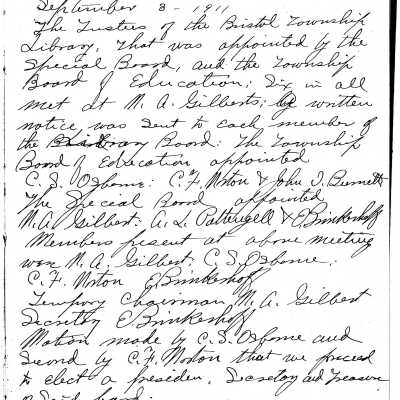 September 8 - 1911
The Trustees of the Bristol Township
Library, that was appointed by the
Special Board, and the Township
Board of Education; Six in all
met at M. A. Gilberts; written
notice was sent to each member of
the Board: The Township
Board of Education appointed
C. S. Osborne: C. F. Norton & John D. Burnett
The Special Board appointed
M. A. Gilbert: A. L. Pattengell & E Brinkerhoff
Members present at above meeting
were M. A. Gilbert, C. S. Osborne,
C. F. Norton E Brinkerhoff
Tempory Chairman, M. A. Gilbert
Secretary E Brinkerhoff
Motion made by C. S. Osborne and
Second by C. F. Norton that we proceed
to elect a presiden, Secretary and Treasure